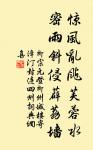 惊风乱飐芙蓉水
密雨斜侵薜荔墙
柳宗元登柳州城楼寄
漳汀封连四州刺史